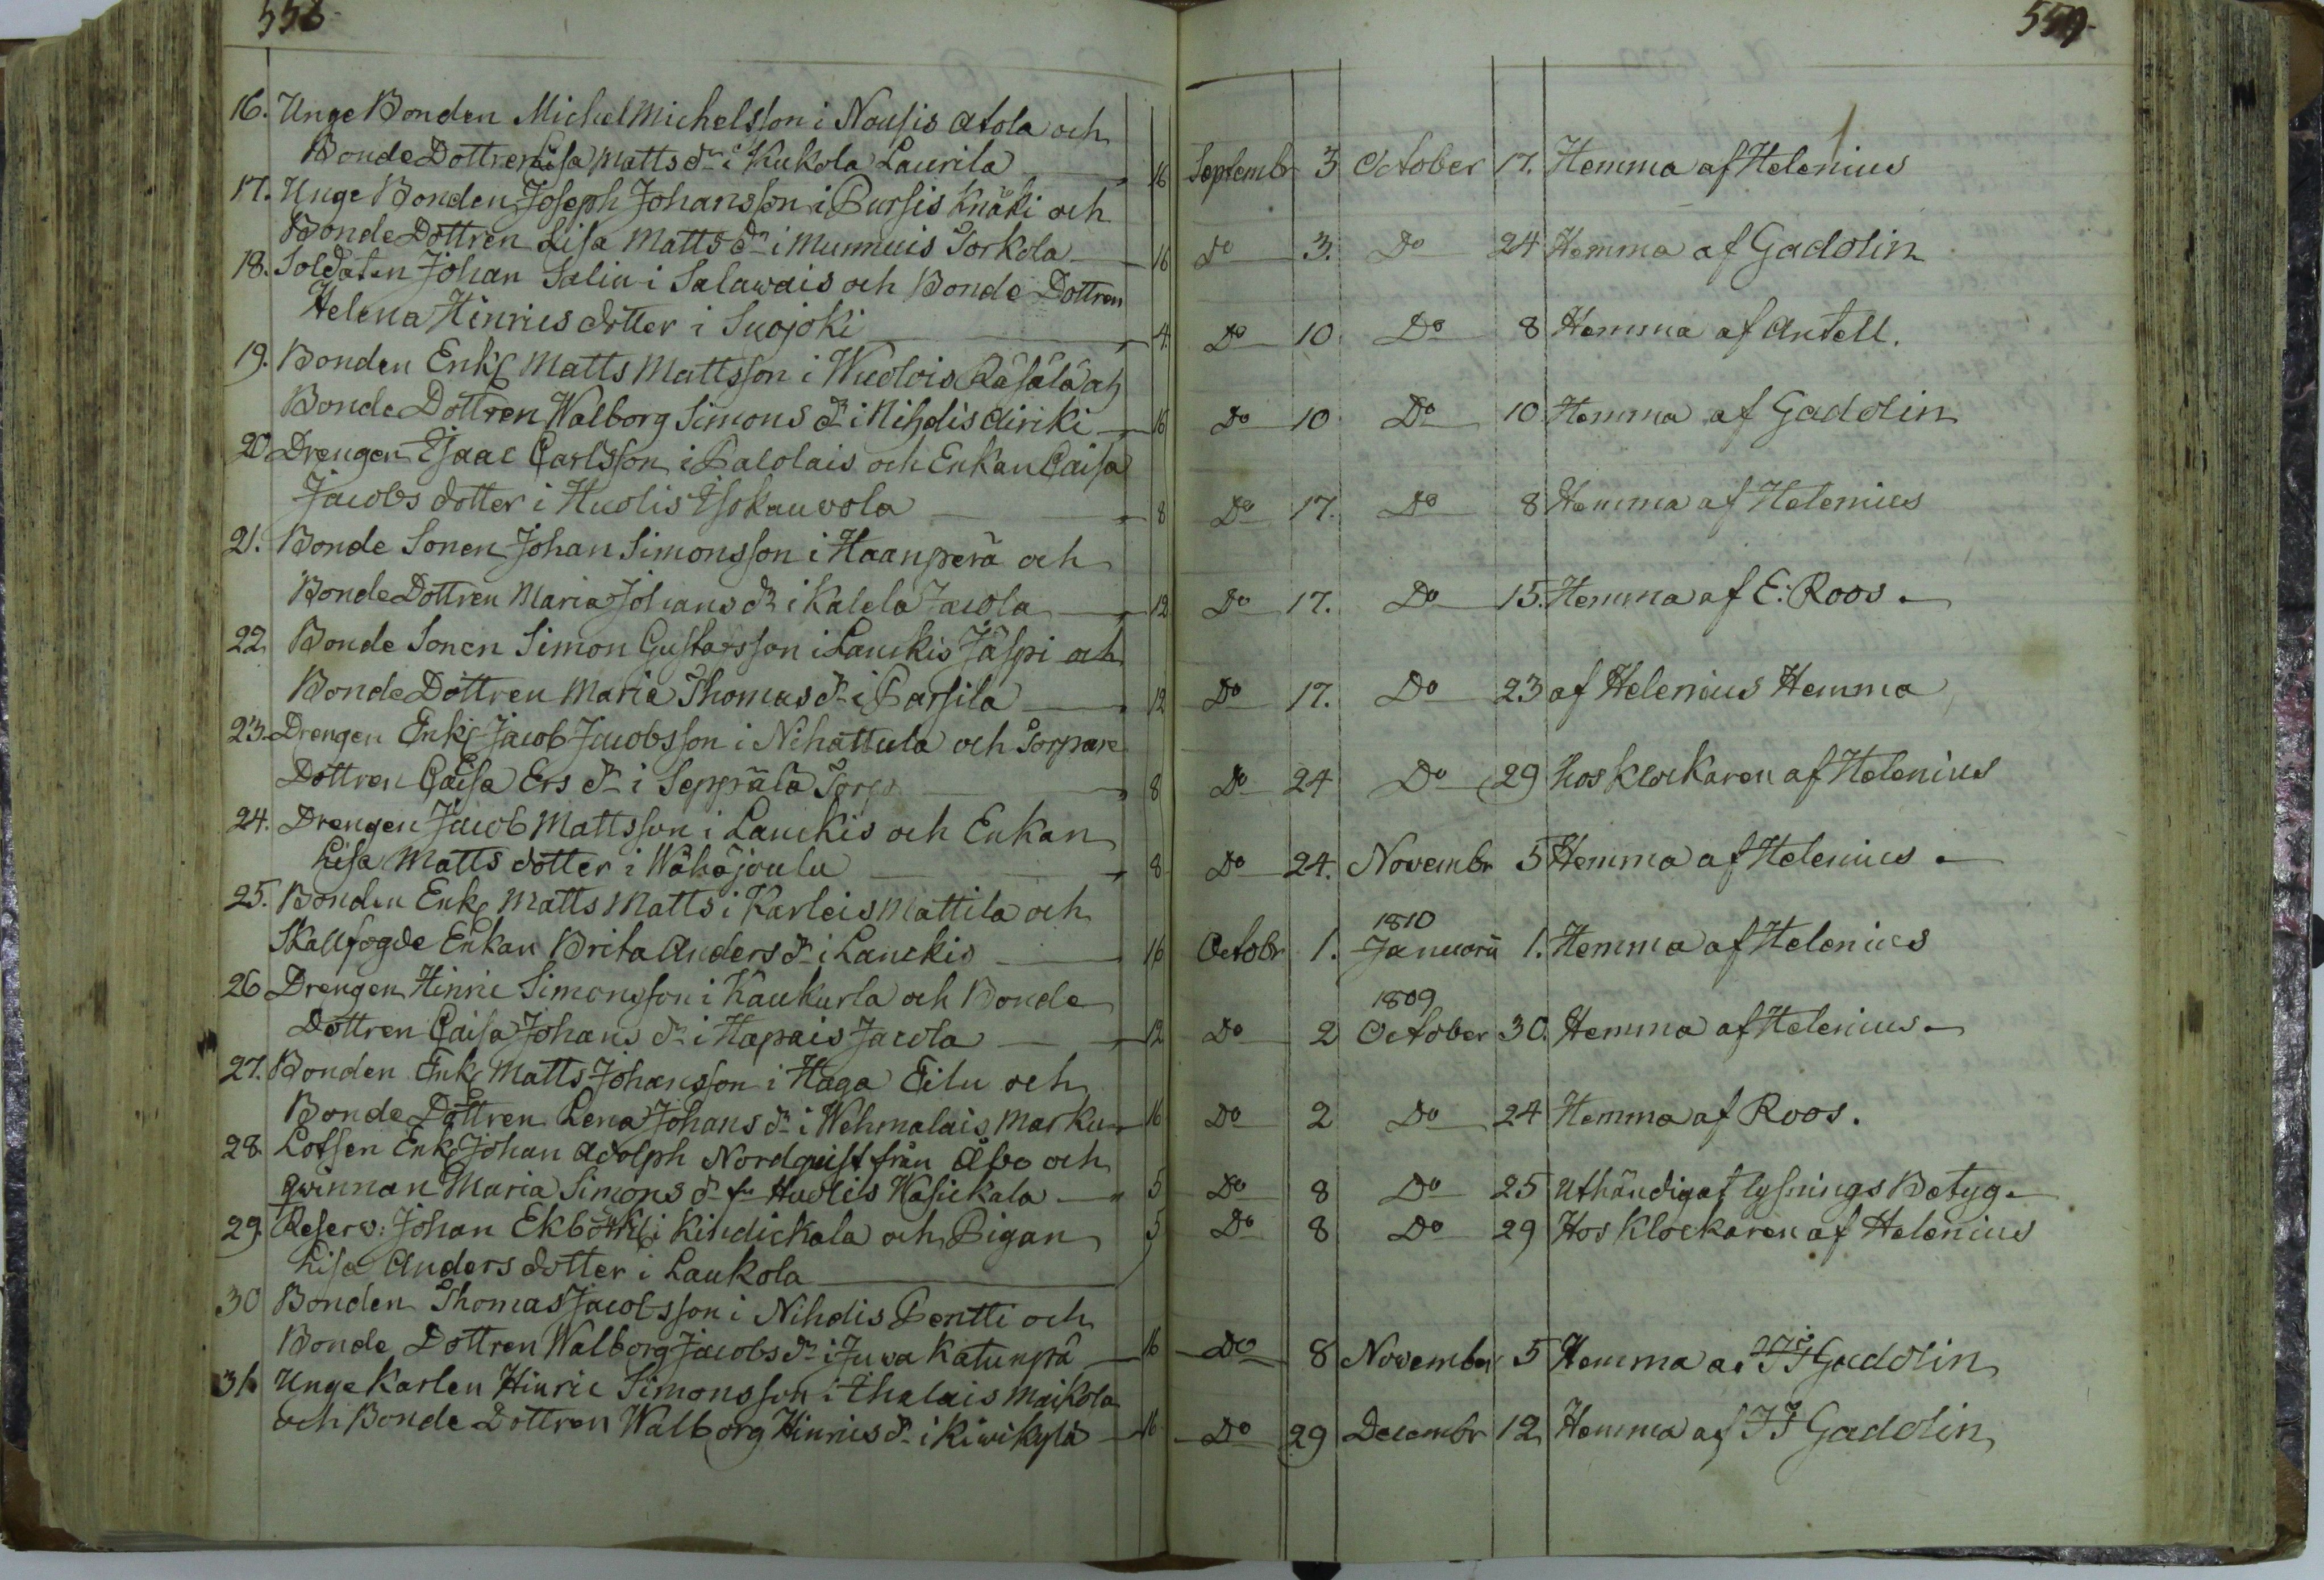 558
16. Unge Bonden Michel Michelsson i Nousis Atola och
Bonde Dottren Lisa Matts dr i Kukola Laurila 16
17. Unge Bonden Joseph Johansson i Pursis Knäki och
Bonde Dottren Lisa Matts dr i Munnuis Torkola 16
18. Soldaten Johan Salin i Salawais och Bonde Dottren
Helena Hinrics dotter i Suojoki 4
19. Bonden Enkl Matts Mattsson i Wuolois Räsälä och
Bonde Dottren Walborg Simons dr i Nihdis Airiki 16
20 Drengen Isaac Carlsson i Palolais och Enkan Caisa
Jacobs dotter i Huolis Isokauvola 8
21. Bonde Sonen Johan Simonsson i Haanperä och
Bonde Dottren Maria Johans dr i Kalela Jacola 12
22 Bonde Sonen Simon Gustafsson i Lauckis Jäspi och
Bonde Dottren Maria Thomas dr i Parsila 12
23. Drengen Enkl Jacob Jacobsson i Nihattula och Torpare
Dottren Caisa Ers dr i Seppälä Torp 8
24. Drengen Jacob Mattsson i Lauckis och Enkan
Lisa Matts dotter i Wähäjoulu 8
25. Bonden Enkl Matts Matts i Karleis Mattila och
Skallfogde Enkan Brita Anders dr i Lauckis 16
26 Drengen Hinric Simonsson i Kaukurla och Bonde
Dottren Caisa Johans dr i Hapais Jacola 12
27. Bonden Enkl Matts Johansson i Haga Eilu och
Bonde Dottren Lena Johans dr i Wehmalais Marku 16
28. Lotsen Enkl Johan Adolph Nordquist från Åbo och
qwinnan Maria Simons dr fr Huolis Wasickala 5
29. Reserv: Johan Ekbom i Kindickala och Pigan 5
Lisa Anders dotter i Laukola
30 Bonden Thomas Jacobsson i Nihdis Pentti och
Bonde Dottren Walborg Jacobs dr i Juva Katunpä 16
31. Unge Karlen Hinric Simonsson i Ihalais Maikola
och Bonde Dottren Walborg Hinrics dr i Kiwikylä 16
559
Septembr 3 October 17. Hemma af Helenius
Do 3. Do 24 Hemma af Gadolin
Do 10 Do 8 Hemma af Antell.
Do 10 Do 10 Hemma af Gadolin
Do 17. Do 8 Hemma af Helenius
Do 17. Do 15. Hemma af E. Roos
Do 17. Do 23 af Helenius Hemma
Do 24 Do 29 hos Klockaren af Helenius
Do 24. Novembr 5 Hemma af Helenius
1810
Octobr 1. Januarii 1. Hemma af Helenius
1809
Do 2 October 30. Hemma af Helenius
Do 2 Do 24 Hemma af Roos.
Do 8 Do 25 Uthändigat lysnings Betyg
Do 8 Do 29 Hos Klockaren af Helenius
Do 8 November 5 Hemma af JJ Gadolin
Do 29 Decembr 12 Hemma af JJ Gadolin